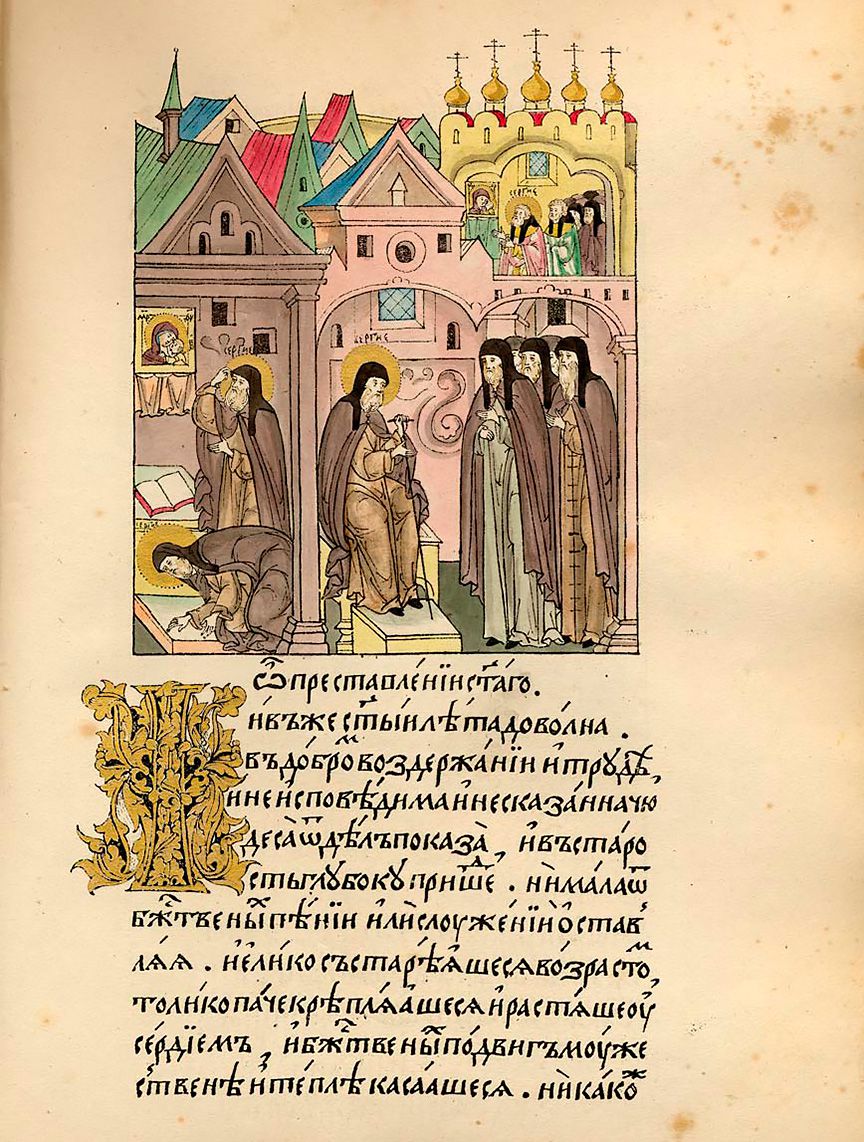 сергие
сергие
сергие
сергие
Ѡ преставле́нїи ст҃а́го.
Жи́въ же ст҃ы́и лѣ́та дово́лна .
въ до́брѡⷨ воздержа́нїи и҆ трꙋдѣⷯ,
и҆ неисповѣ́дима и҆ несказа́нна чю
деса̀ ѿ дѣ́лъ показа̀ , и҆ въ ста́ро
сть глꙋбокꙋ прише́ⷣ . ни ма́ла ѿ
бжⷭ҇твеныⷯ пѣ́нїи и҆лѝ слоуже́нїи ѻ҆став
лѧ́ѧ . и҆ е҆лико състарѣ́ѧшесѧ во́зрастоⷨ,
толи́ко па́че крѣплѧ́ашесѧ и҆ растѧ́ше оу҆
се́рдїемъ , и҆ бжⷭ҇твеныⷯ по́двигъ моу́же
ственѣ и҆ те́плѣ каса́ашесѧ . ни҆како́ⷤ